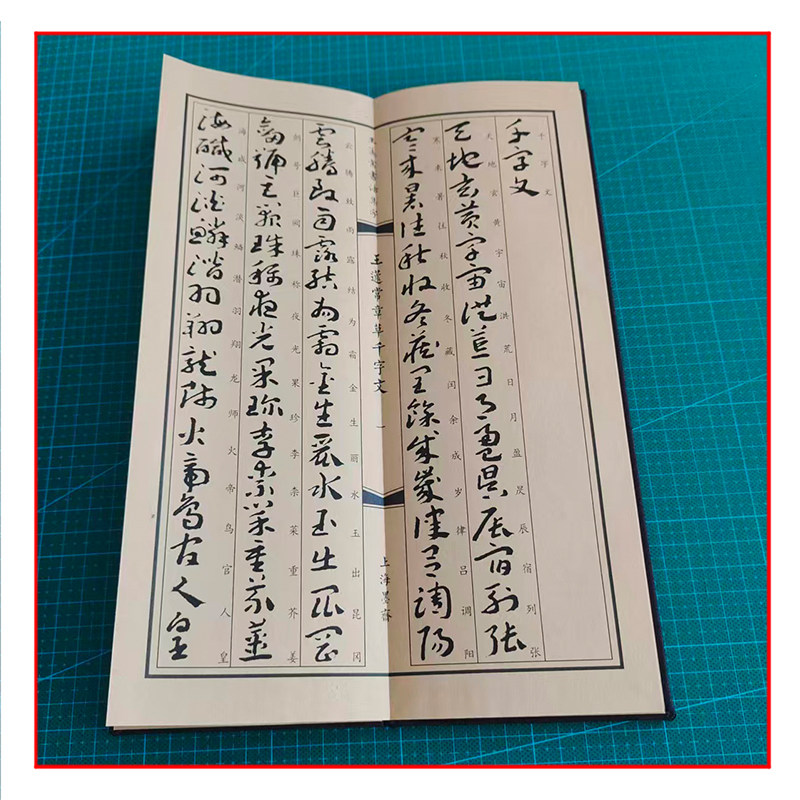 千字文
千字文
天地玄黃宇宙洪荒日月盈昃辰宿列張
天地玄黄宇宙洪荒日月盈昃辰宿列张
寒來暑往秋收冬藏閏餘成歲律呂調陽
寒来暑往秋收冬藏闰余成岁律吕调阳
王蘧常章草千字文
一
上海墨斋
雲騰致雨露結為霜金生麗水玉出崐岡
云腾致雨露结为霜金生丽水玉出昆冈
劍號巨闕珠稱夜光果珍李柰菜重芥薑
剑号巨阙珠称夜光果珍李柰菜重芥姜
海鹹河淡鱗潛羽翔龍師火帝鳥官人皇
海咸河淡鳞潜羽翔龙师火帝鸟官人皇